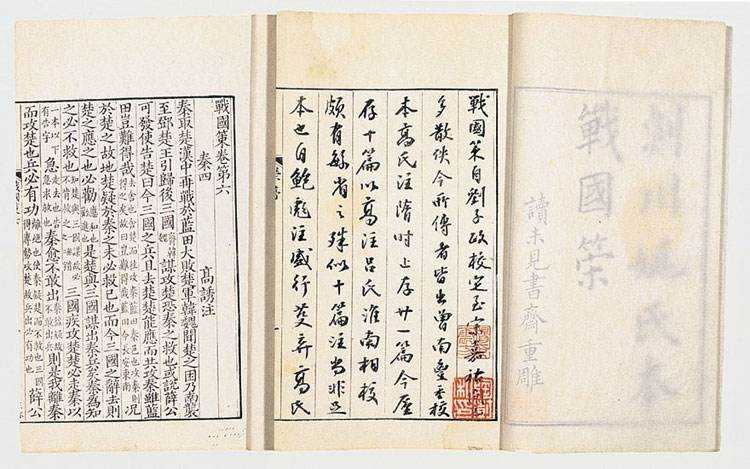 剡川姚氏本
戰國策
讀未見書齋重雕
戰國策自劉子政校定至宋嘉祐
多散佚今所傳者皆出曾南豐重校
本高氏注隋時上存廿一篇今
存十篇以高注吕氏淮南相校
頗有繁省之殊似十篇注尚非足
本也自鮑彪注盛行弃高氏
戰國策卷第六
秦四 高誘注
秦取楚漢中再戰於藍田大敗楚軍韓魏聞楚之困乃南襲
至鄧楚王引歸後三國齊韓魏謀攻楚恐秦之救也或說薛公
可發使告楚曰今三國之兵且去楚楚能應而共攻秦雖藍
田豈難得哉 況
於楚之故地楚疑於秦之未必救已也而今三國之辭去則
楚之應之也必勸 是楚與三國謀出秦兵矣秦為知
之必不救也 三國疾攻楚楚必走秦以
急 秦愈不敢出 則是我離秦
而攻楚也兵必有功 薛公